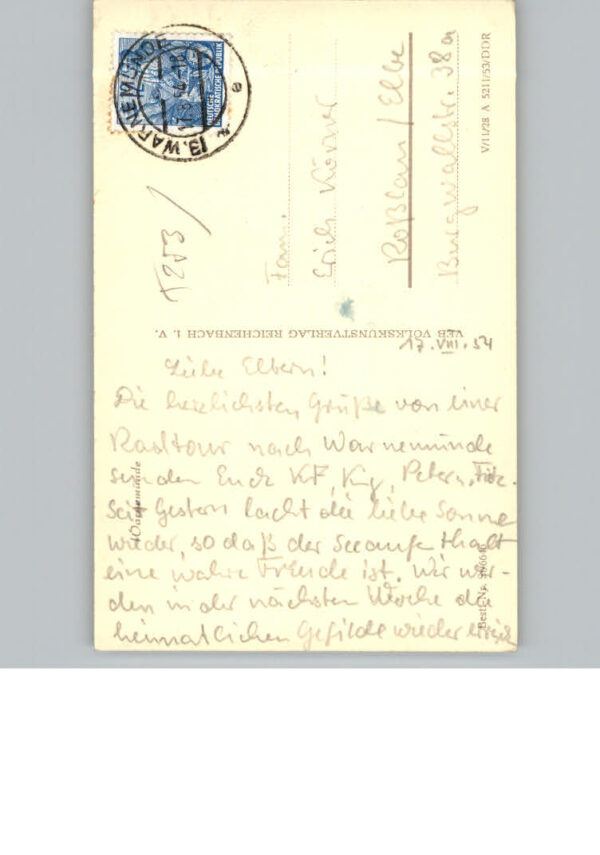 WARNEMÜNDE
DEUTSCHE
DEMOKRATISCHE REPUBLIK
Fam.
Erich Körner
Roßlau / Elbe
Burgwallstr. 38a
V/11/28 A 5211/53/DDR
VEB VOLKSKUNSTVERLAG REICHENBACH I. V.
17.VIII.54
Liebe Eltern!
Die herzlichsten Grüße von einer
Radtour nach Warnemünde
senden Euch KF, Peter,
Seit Gestern lacht die liebe Sonne
wieder, so daß der Seeaufenthalt
eine wahre Freude ist. Wir wer-
den in der nächsten Woche die
heimatlichen Gefilde wieder
Warnemünde
Best. Nr.